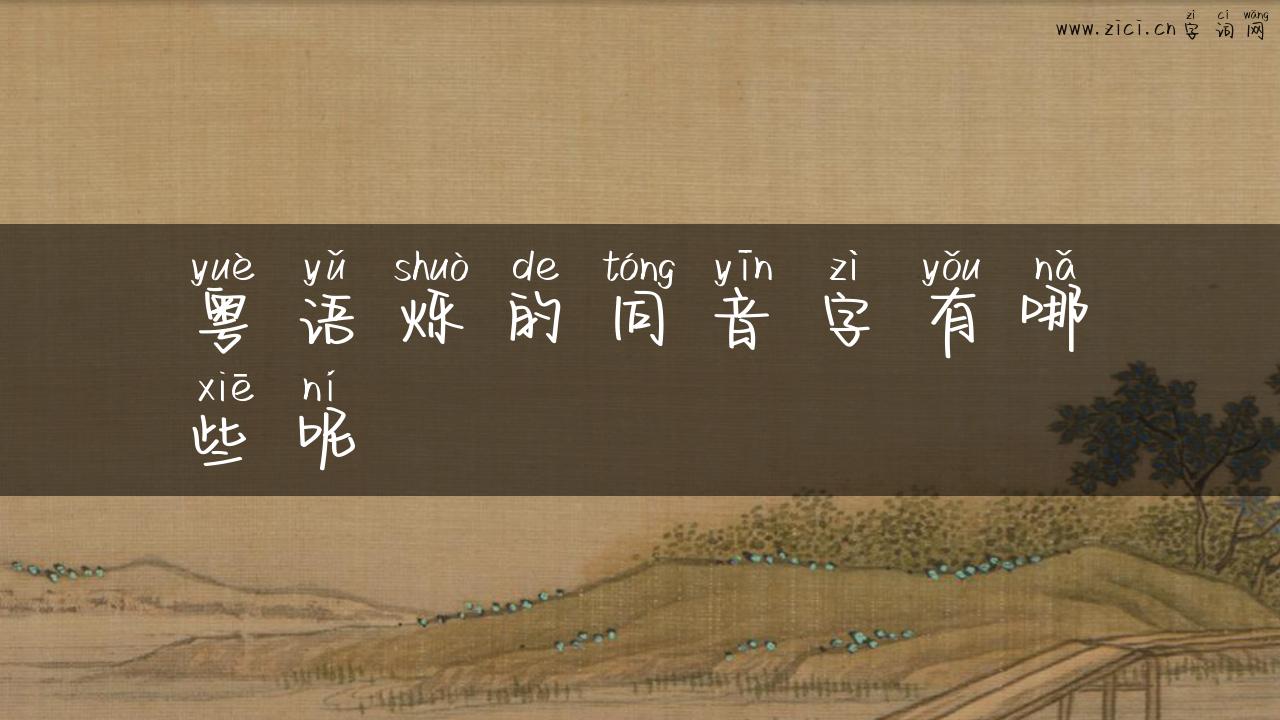 zì cí wǎng
www.zici.cn字词网
yuè yǔ shuò de tóng yīn zì yǒu nǎ
粤语烁的同音字有哪
xiē ní
些呢